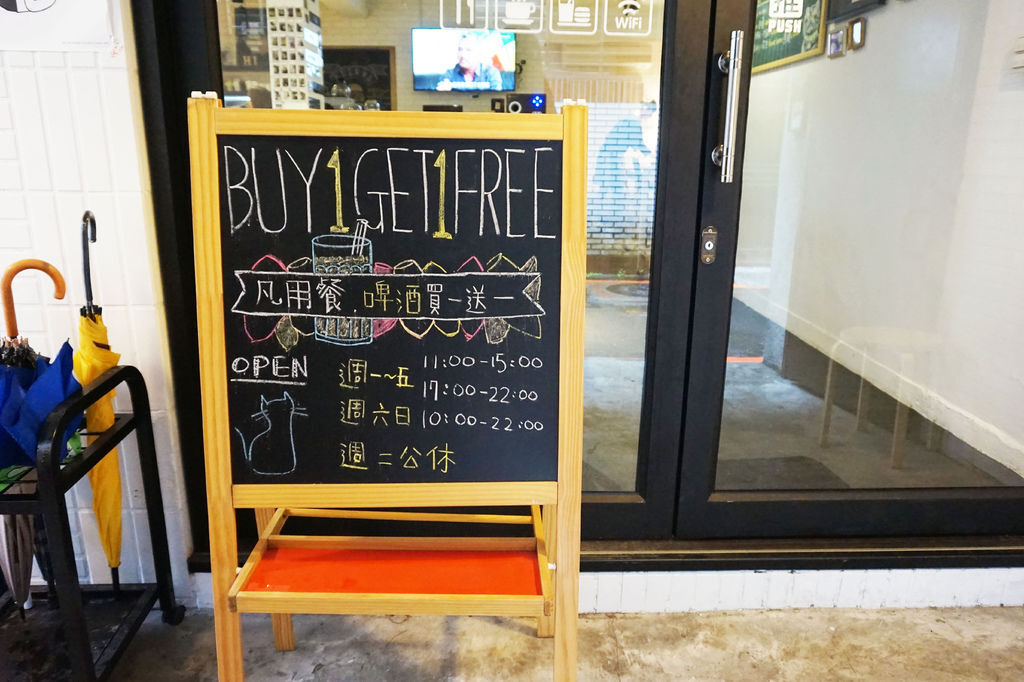 WiFi
推
PUSH
BUY 1 GET 1 FREE
凡用餐.啤酒買一送一
OPEN
週一~五 11:00-15:00
17:00-22:00
週六日 10:00-22:00
週二公休